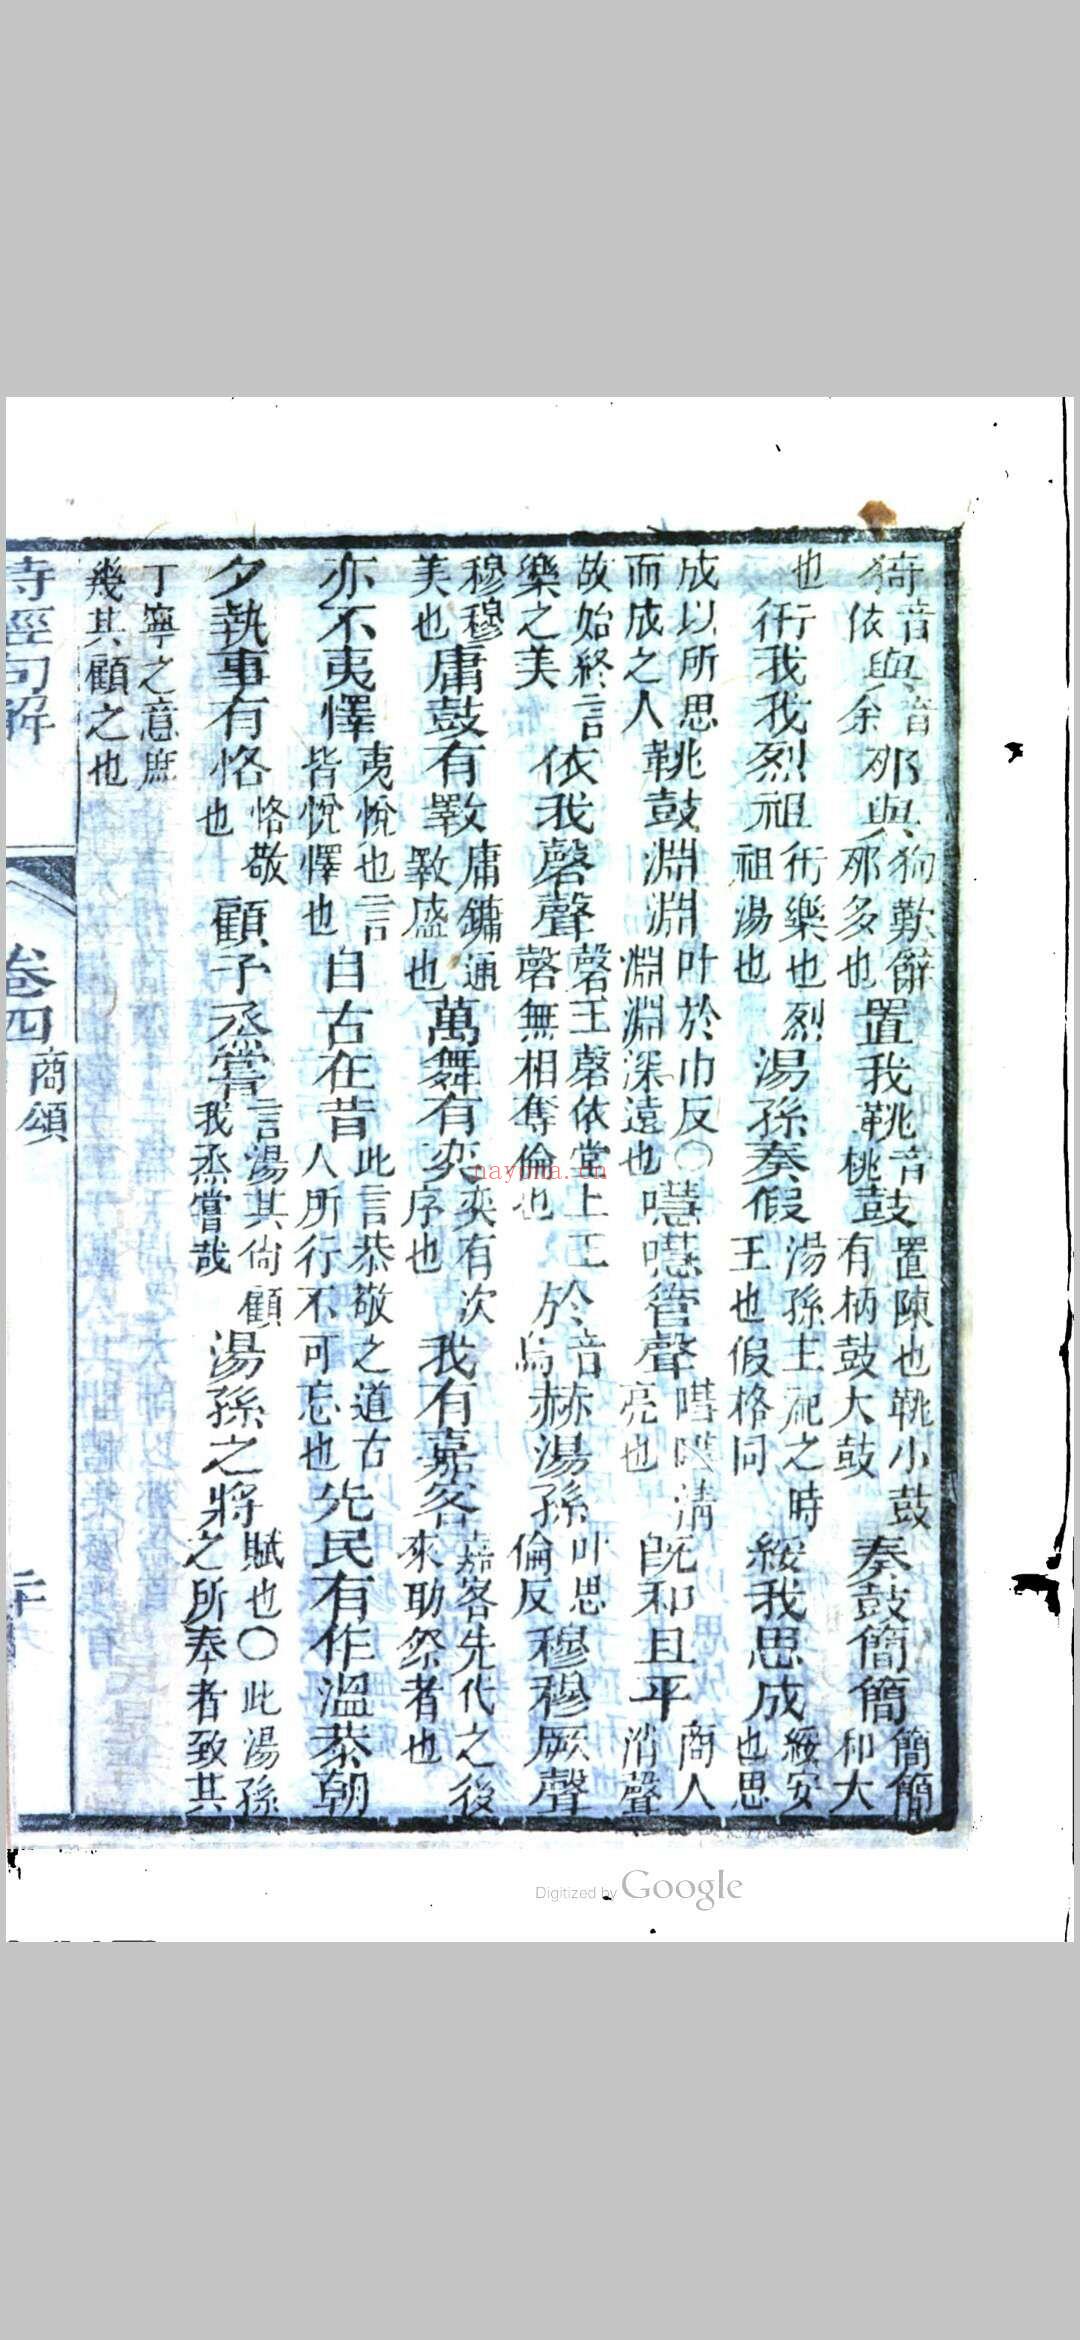 猗音依與音余那與猗歎辭那多也置我鞉音桃鼓置陳也鞉小鼓有柄鼓大鼓奏鼓簡簡簡簡和大
也衎我我烈祖衎樂也烈祖湯也湯孫奏假湯孫主祀之時王也假格同綏我思成綏安也思
成以所思而成之人鞉鼓淵淵叶於巾反○淵淵深遠也嘒嘒管聲嘒嘒清亮也既和且平商人尚聲
故始終言樂之美依我磬聲磬玉磬依堂上玉磬無相奪倫也於音烏赫湯孫叶思倫反穆穆厥聲
穆穆美也庸鼓有斁庸鏞通斁盛也萬舞有奕奕有次序也我有嘉客嘉客先代之後來助祭者也
亦不夷懌夷悅也言皆悅懌也自古在昔此言恭敬之道古人所行不可忘也先民有作溫恭朝
夕執事有恪恪敬也顧予烝嘗言湯其尚顧我烝嘗哉湯孫之將賦也○此湯孫之所奉者致其
丁寧之意庶幾其顧之也
詩經句解 卷四 商頌
nayona.cn
Digitized by Google